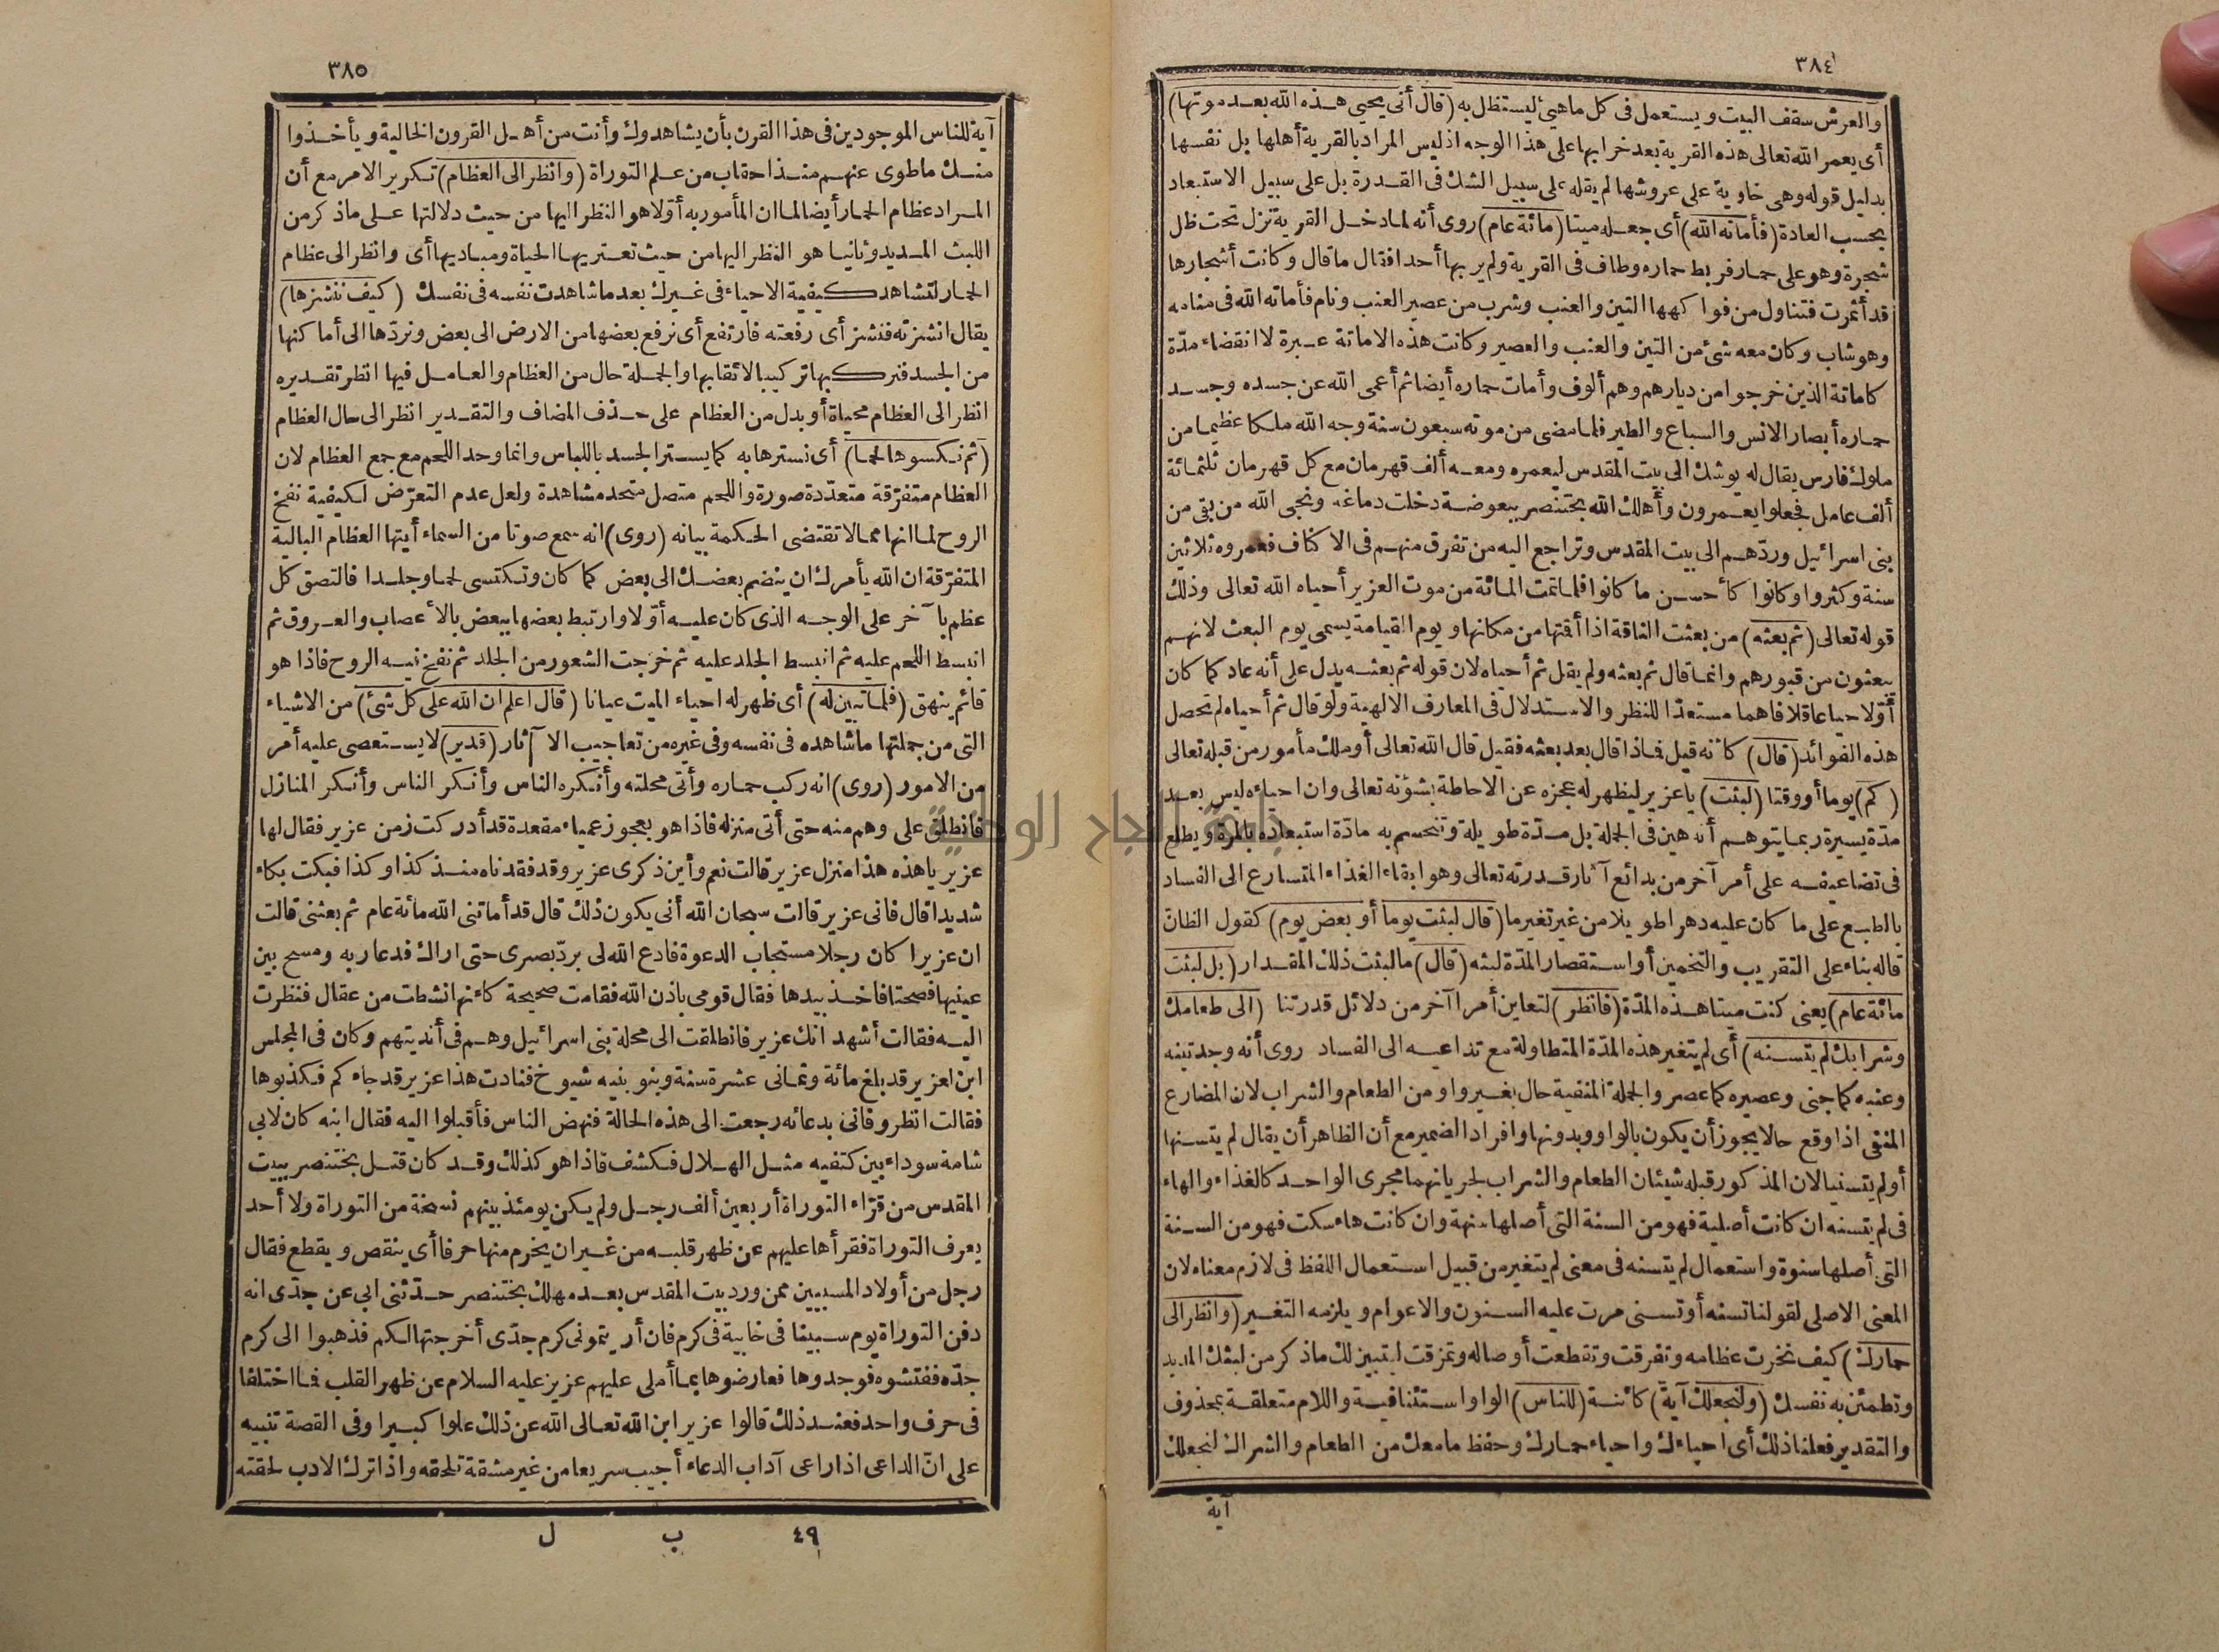 ٣٨٤
والعرش سقف البيت ويستعمل فى كل ماهيئ ليستظل به (قال أنى يحيى هذه الله بعد موتها)
أى يعمر الله تعالى هذه القرية بعد خرابها على هذا الوجه اذ ليس المراد بالقرية أهلها بل نفسها
بدليل قوله وهى خاوية على عروشها لم يقله على سبيل الشك فى القدرة بل على سبيل الاستبعاد
بحسب العادة (فأماته الله) أى جعله ميتا (مائة عام) روى أنه لما دخل القرية نزل تحت ظل
شجرة وهو على حمار فربط حماره وطاف فى القرية ولم ير بها أحدا فقال ما قال وكانت أشجارها
قد أثمرت فتناول من فواكهها التين والعنب وشرب من عصير العنب ونام فأماته الله فى منامه
وهو شاب وكان معه شئ من التين والعنب والعصير وكانت هذه الاماتة عبرة لا انقضاء مدّة
كاماتة الذين خرجوا من ديارهم وهم ألوف وأمات حماره أيضا ثم أعمى الله عن جسده وجسد
حماره أبصار الانس والسباع والطير فلما مضى من موته سبعون سنة وجه الله ملكا عظيما من
ملوك فارس يقال له يوشك الى بيت المقدس ليعمره ومعه ألف قهرمان مع كل قهرمان ثلثمائة
ألف عامل فجعلوا يعمرون وأهلك الله بختنصر ببعوضة دخلت دماغه ونجى الله من بقى من
بنى اسرائيل وردّهم الى بيت المقدس وتراجع اليه من تفرق منهم فى الاكناف فعمروه ثلاثين
سنة وكثروا وكانوا كأحسن ما كانوا فلما تمت المائة من موت العزير أحياه الله تعالى وذلك
قوله تعالى (ثم بعثه) من بعثت الناقة اذا أقتها من مكانها ويوم القيامة يسمى يوم البعث لانهم
يبعثون من قبورهم وانما قال ثم بعثه ولم يقل ثم أحياه لان قوله ثم بعثه يدل على أنه عاد كما كان
أوّلا حيا عاقلا فاهما مستعدّا للنظر والاستدلال فى المعارف الالهية ولو قال ثم أحياه لم تحصل
هذه الفوائد (قال) كأنه قيل فماذا قال بعد بعثه فقيل قال الله تعالى أو ملك مأمور من قبله تعالى
(كم) يوما أو وقتا (لبثت) يا عزير ليظهر له عجزه عن الاحاطة بشؤنه تعالى وان احياءه ليس بعد
مدّة يسيرة ربما يتوهم أنه هين فى الجملة بل مدّة طويلة وتنحسم به مادّة استبعاده بالمرة ويطلع
فى تضاعيفه على أمر آخر من بدائع آثار قدرته تعالى وهو ابقاء الغذاء المتسارع الى الفساد
بالطبع على ما كان عليه دهرا طويلا من غير تغير ما (قال لبثت يوما أو بعض يوم) كقول الظانّ
قاله بناء على التقريب والتخمين أو استقصار المدّة لبثه (قال) ما لبثت ذلك المقدار (بل لبثت
مائة عام) يعنى كنت ميتا هذه المدّة (فانظر) لتعاين أمرا آخر من دلائل قدرتنا (الى طعامك
وشرابك لم يتسنه) أى لم يتغير هذه المدّة المتطاولة مع تداعيه الى الفساد روى أنه وجد تينه
وعنبه كما جنى وعصيره كما عصر والجملة المنفية حال بغير واو من الطعام والشراب لان المضارع
المنفى اذا وقع حالا يجوز أن يكون بالواو وبدونها وافراد الضمير مع أن الظاهر أن يقال لم يتسنها
أو لم يتسنيا لان المذكور قبله شيئان الطعام والشراب لجريانهما مجرى الواحد كالغذاء والهاء
فى لم يتسنه ان كانت أصلية فهو من السنة التى أصلها سنهة وان كانت هاء سكت فهو من السنة
التى أصلها سنوة واستعمال لم يتسنه فى معنى لم يتغير من قبيل استعمال اللفظ فى لازم معناه لان
المعنى الاصلى لقولنا تسنه أو تسنى مرت عليه السنون والاعوام ويلزمه التغير (وانظر الى
حمارك) كيف نخرت عظامه وتفرقت وتقطعت أوصاله وتمزقت ليتبين لك ما ذكر من لبثك المديد
وتطمئن به نفسك (ولنجعلك آية) كائنة (للناس) الواو استئنافية واللام متعلقة بمحذوف
والتقدير فعلنا ذلك أى احياءك واحياء حمارك وحفظ ما معك من الطعام والشراب لنجعلك
آية
٣٨٥
آية للناس الموجودين فى هذا القرن بأن يشاهدوك وأنت من أهل القرون الخالية ويأخذوا
منك ما طوى عنهم منذ احقاب من علم التوراة (وانظر الى العظام) تكرير الامر مع أن
المراد عظام الحمار أيضا لما ان المأمور به أوّلا هو النظر اليها من حيث دلالتها على ما ذكر من
اللبث المديد وثانيا هو النظر اليها من حيث تعتريها الحياة ومباديها أى وانظر الى عظام
الحمار لتشاهد كيفية الاحياء فى غيرك بعد ما شاهدت نفسه فى نفسك (كيف ننشزها)
يقال انشزته فنشز أى رفعته فارتفع أى نرفع بعضها من الارض الى بعض ونردّها الى أماكنها
من الجسد فنركبها تركيبا لائقا بها والجملة حال من العظام والعامل فيها انظر تقديره
انظر الى العظام محياة أو بدل من العظام على حذف المضاف والتقدير انظر الى حال العظام
(ثم نكسوها لحما) أى نسترها به كما يستر الجسد باللباس وانما وحد اللحم مع جمع العظام لان
العظام متفرّقة متعدّدة صورة واللحم متصل متحد مشاهدة ولعل عدم التعرّض لكيفية نفخ
الروح لما انها مما لا تقتضى الحكمة بيانه (روى) انه سمع صوتا من السماء أيتها العظام البالية
المتفرّقة ان الله يأمرك ان ينضم بعضك الى بعض كما كان وتكتسى لحما وجلدا فالتصق كل
عظم بآخر على الوجه الذى كان عليه أوّلا وارتبط بعضها ببعض بالأعصاب والعروق ثم
انبسط اللحم عليه ثم انبسط الجلد عليه ثم خرجت الشعور من الجلد ثم نفخ فيه الروح فاذا هو
قائم ينهق (فلما تبين له) أى ظهر له احياء الميت عيانا (قال اعلم ان الله على كل شئ) من الاشياء
التى من جملتها ما شاهده فى نفسه وفى غيره من تعاجيب الآثار (قدير) لا يستعصى عليه أمر
من الامور (روى) انه ركب حماره وأتى محلته وأنكره الناس وأنكر الناس وأنكر المنازل
فانطلق على وهم منه حتى أتى منزله فاذا هو بعجوز عمياء مقعدة قد أدركت زمن عزير فقال لها
عزير يا هذه هذا منزل عزير قالت نعم وأين ذكرى عزير وقد فقدناه منذ كذا وكذا فبكت بكاء
شديدا قال فانى عزير قالت سبحان الله أنى يكون ذلك قال قد أماتنى الله مائة عام ثم بعثنى قالت
ان عزيرا كان رجلا مستجاب الدعوة فادع الله لى بردّ بصرى حتى اراك فدعا ربه ومسح بين
عينيها فصحتا فاخذ بيدها فقال قومى باذن الله فقامت صحيحة كأنها نشطت من عقال فنظرت
اليه فقالت أشهد انك عزير فانطلقت الى محلة بنى اسرائيل وهم فى أنديتهم وكان فى المجلس
ابن لعزير قد بلغ مائة وثمانى عشرة سنة وبنو بنيه شيوخ فنادت هذا عزير قد جاءكم فكذبوها
فقالت انظروا فانى بدعائه رجعت الى هذه الحالة فنهض الناس فأقبلوا اليه فقال ابنه كان لابى
شامة سوداء بين كتفيه مثل الهلال فكشف فاذا هو كذلك وقد كان قتل بختنصر ببيت
المقدس من قرّاء التوراة أربعين ألف رجل ولم يكن يومئذ بينهم نسخة من التوراة ولا أحد
يعرف التوراة فقرأها عليهم عن ظهر قلبه من غير ان يخرم منها حرفا أى ينقص ويقطع فقال
رجل من أولاد المسبيين ممن ورد بيت المقدس بعد مهلك بختنصر حدّثنى ابى عن جدّى انه
دفن التوراة يوم سبينا فى خابية فى كرم فان أريتمونى كرم جدّى أخرجتها لكم فذهبوا الى كرم
جدّه ففتشوه فوجدوها فعارضوها بما أملى عليهم عزير عليه السلام عن ظهر القلب فما اختلفا
فى حرف واحد فعند ذلك قالوا عزير ابن الله تعالى الله عن ذلك علوا كبيرا وفى القصة تنبيه
على انّ الداعى اذا راعى آداب الدعاء أجيب سريعا من غير مشقة تلحقه واذا ترك الادب لحقته
٤٩ ب ل